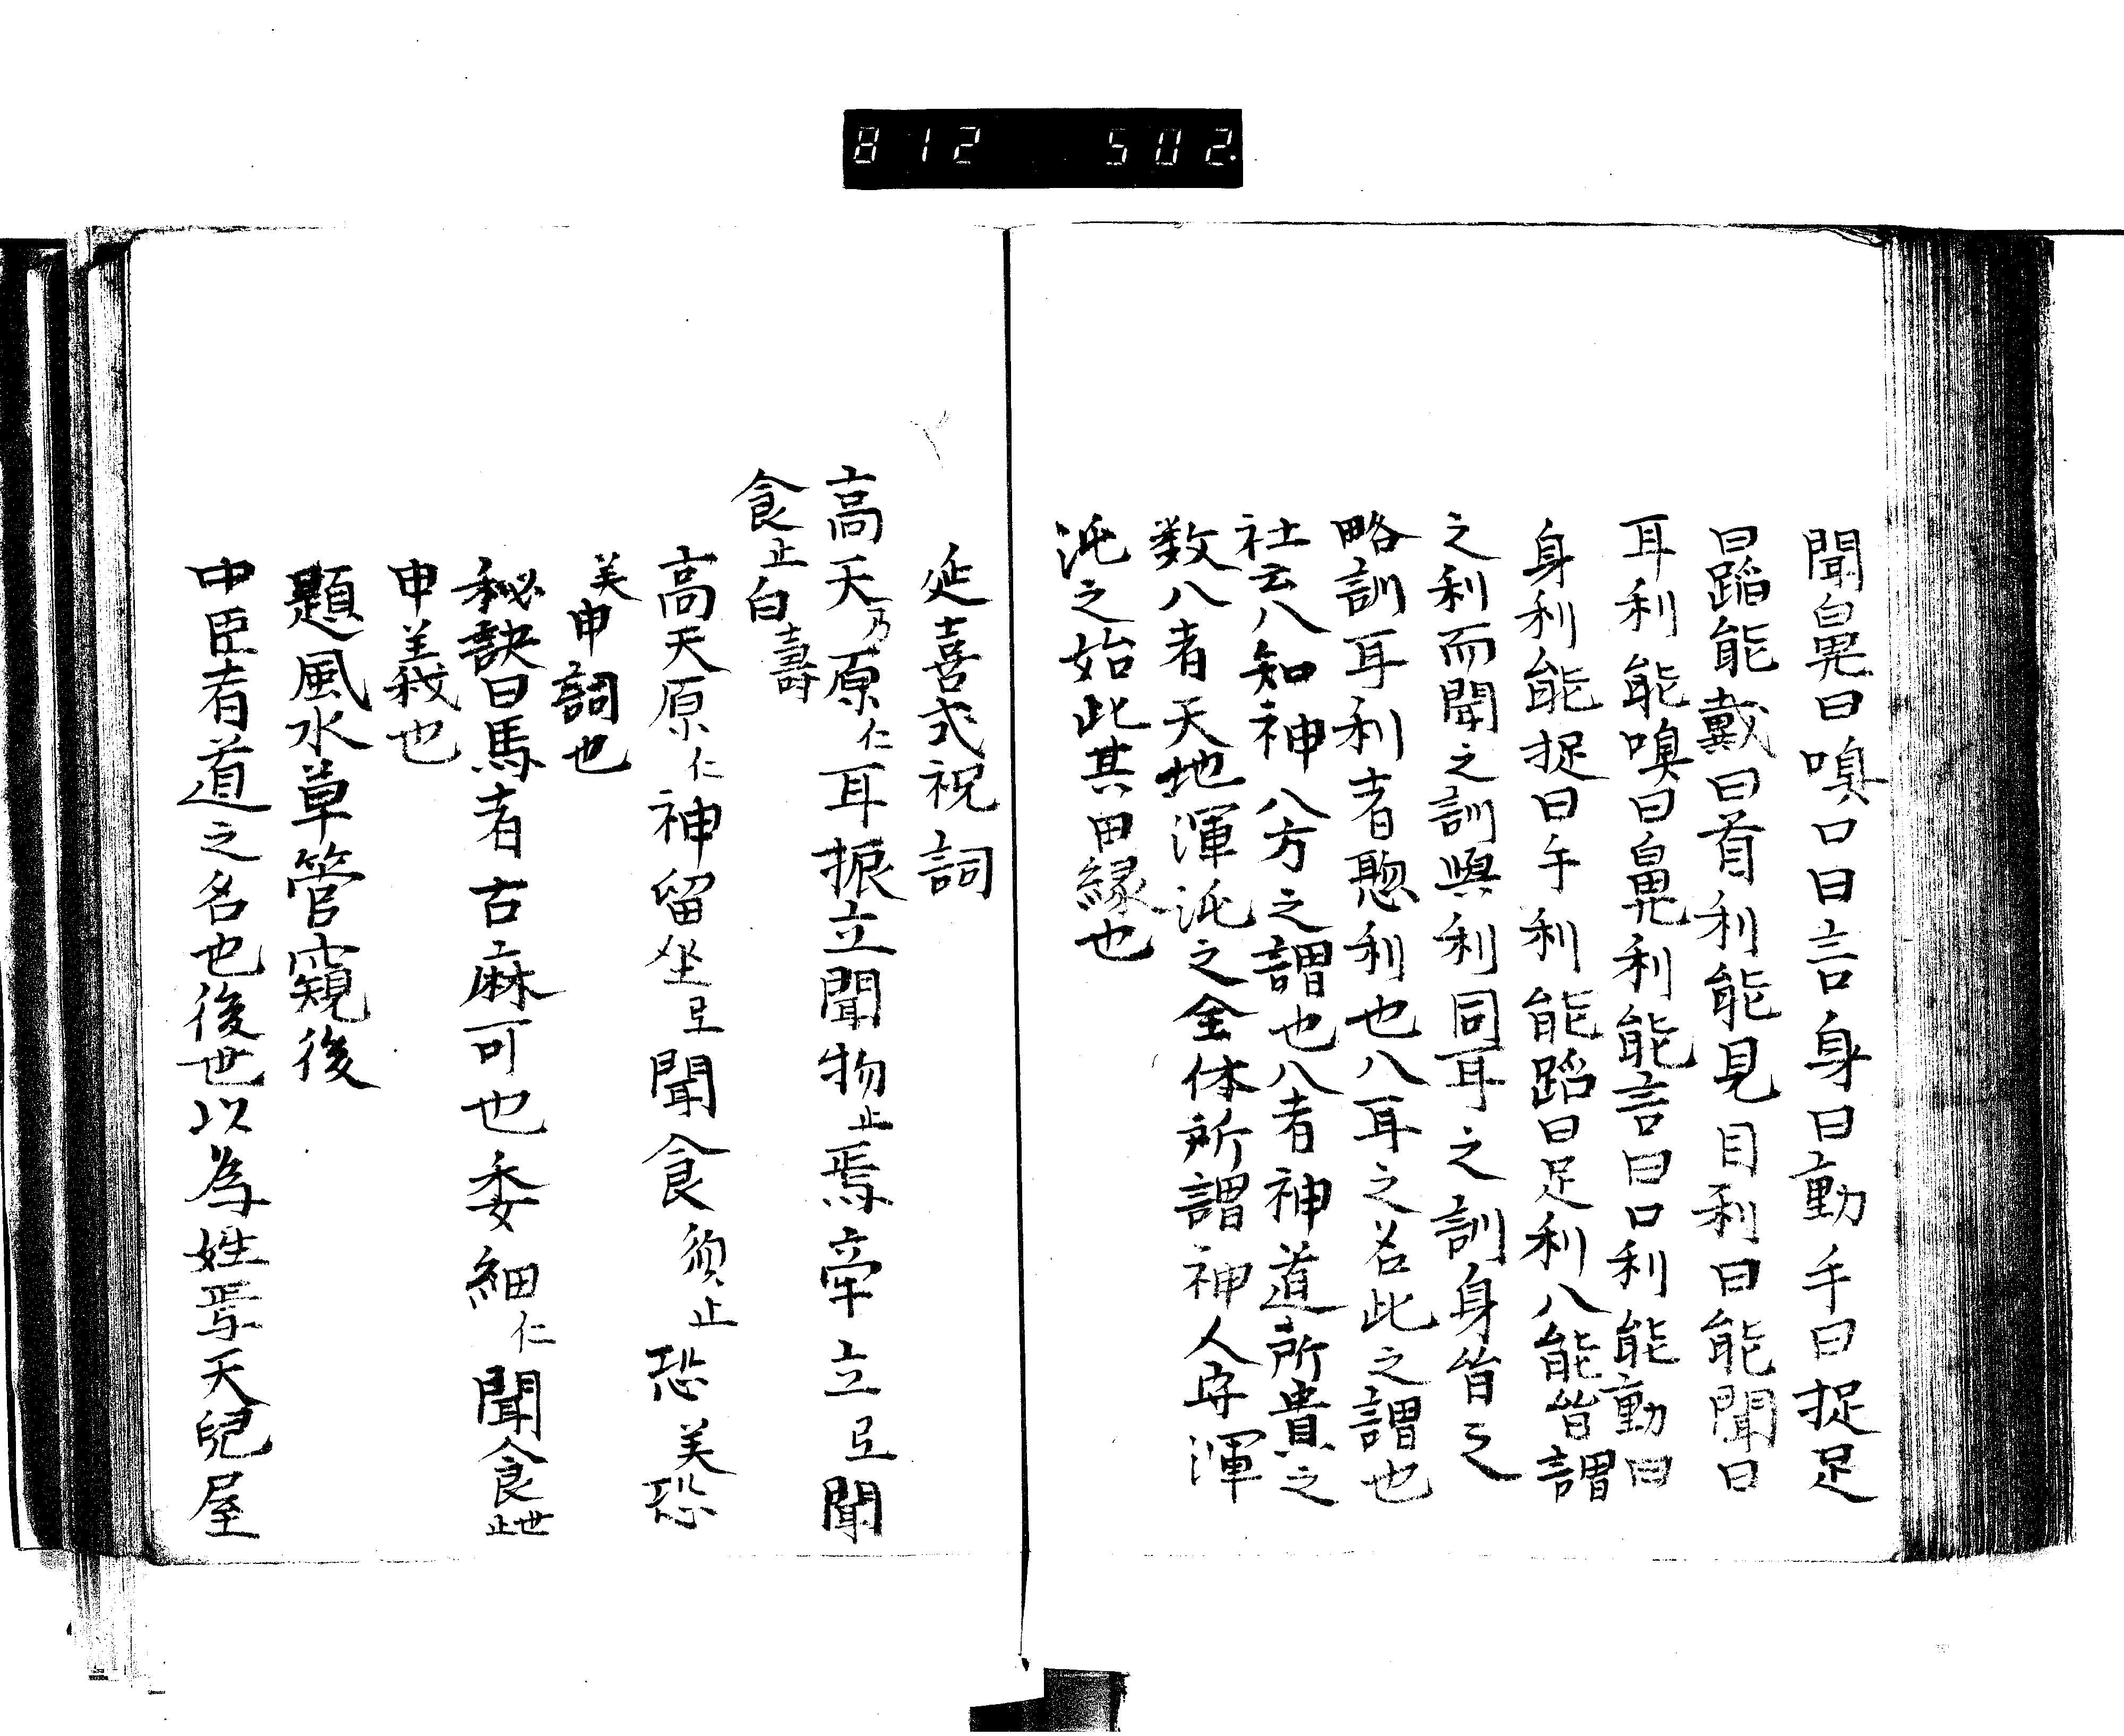 812 502
聞鼻曰嗅口曰言身曰動手曰捉足
曰蹈能戴曰首利能見目利曰能聞曰
耳利能嗅曰鼻利能言曰口利能動曰
身利能捉曰手利能蹈曰足利八能皆謂
之利而聞之訓與利同耳之訓身皆之
略訓耳利者聡利也八耳之名此之謂也
社云八知神八方之謂也八者神道所貴之
数八者天地渾沌之全体所謂神人守渾
沌之始此其由縁也
延喜式祝詞
高天乃原仁耳振立聞物止馬牽立弖聞
食止白壽
高天原仁神留坐弖聞食須止恐美恐
美申詞也
秘訣曰馬者古麻可也委細仁聞食世止
申義也
題風水草管窺後
中臣者道之名也後世以為姓焉天兒屋